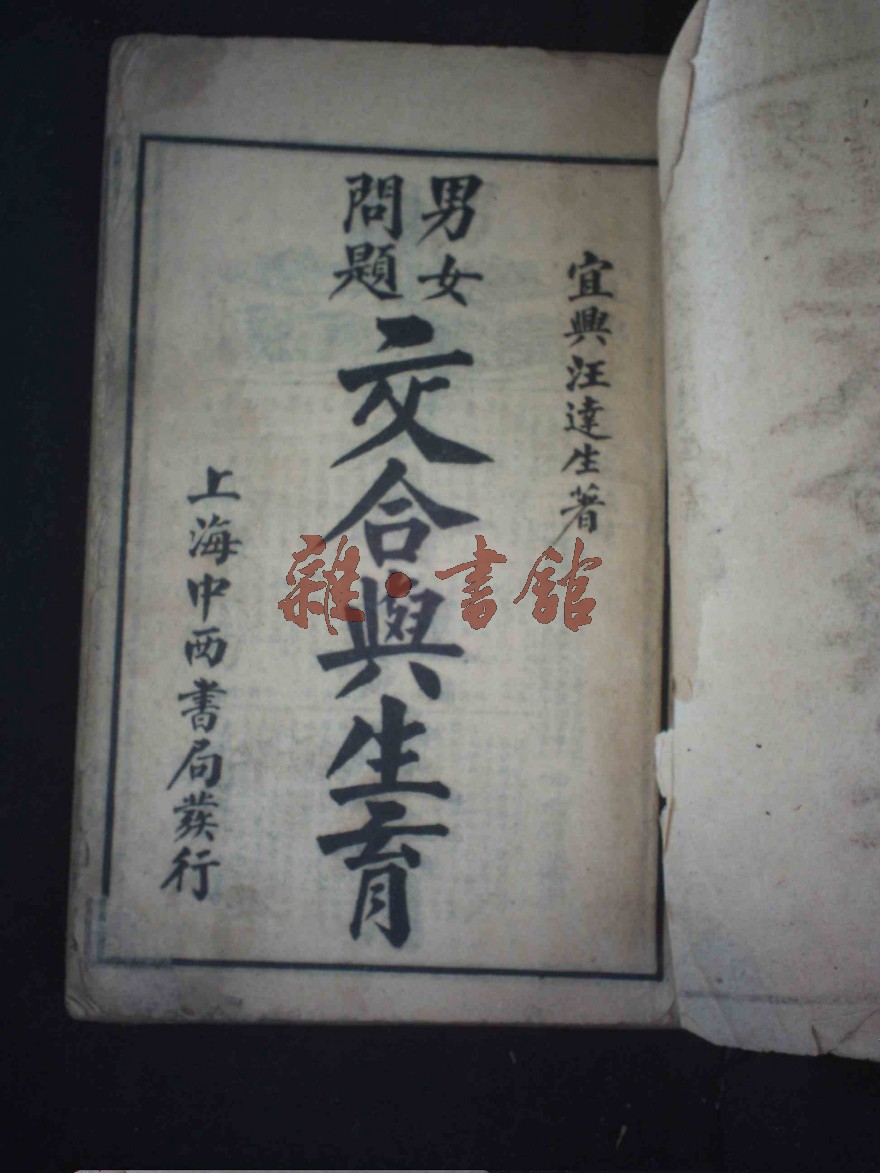 宜興汪達生著
男女
問題
交合與生育
上海中西書局發行
雜·書館